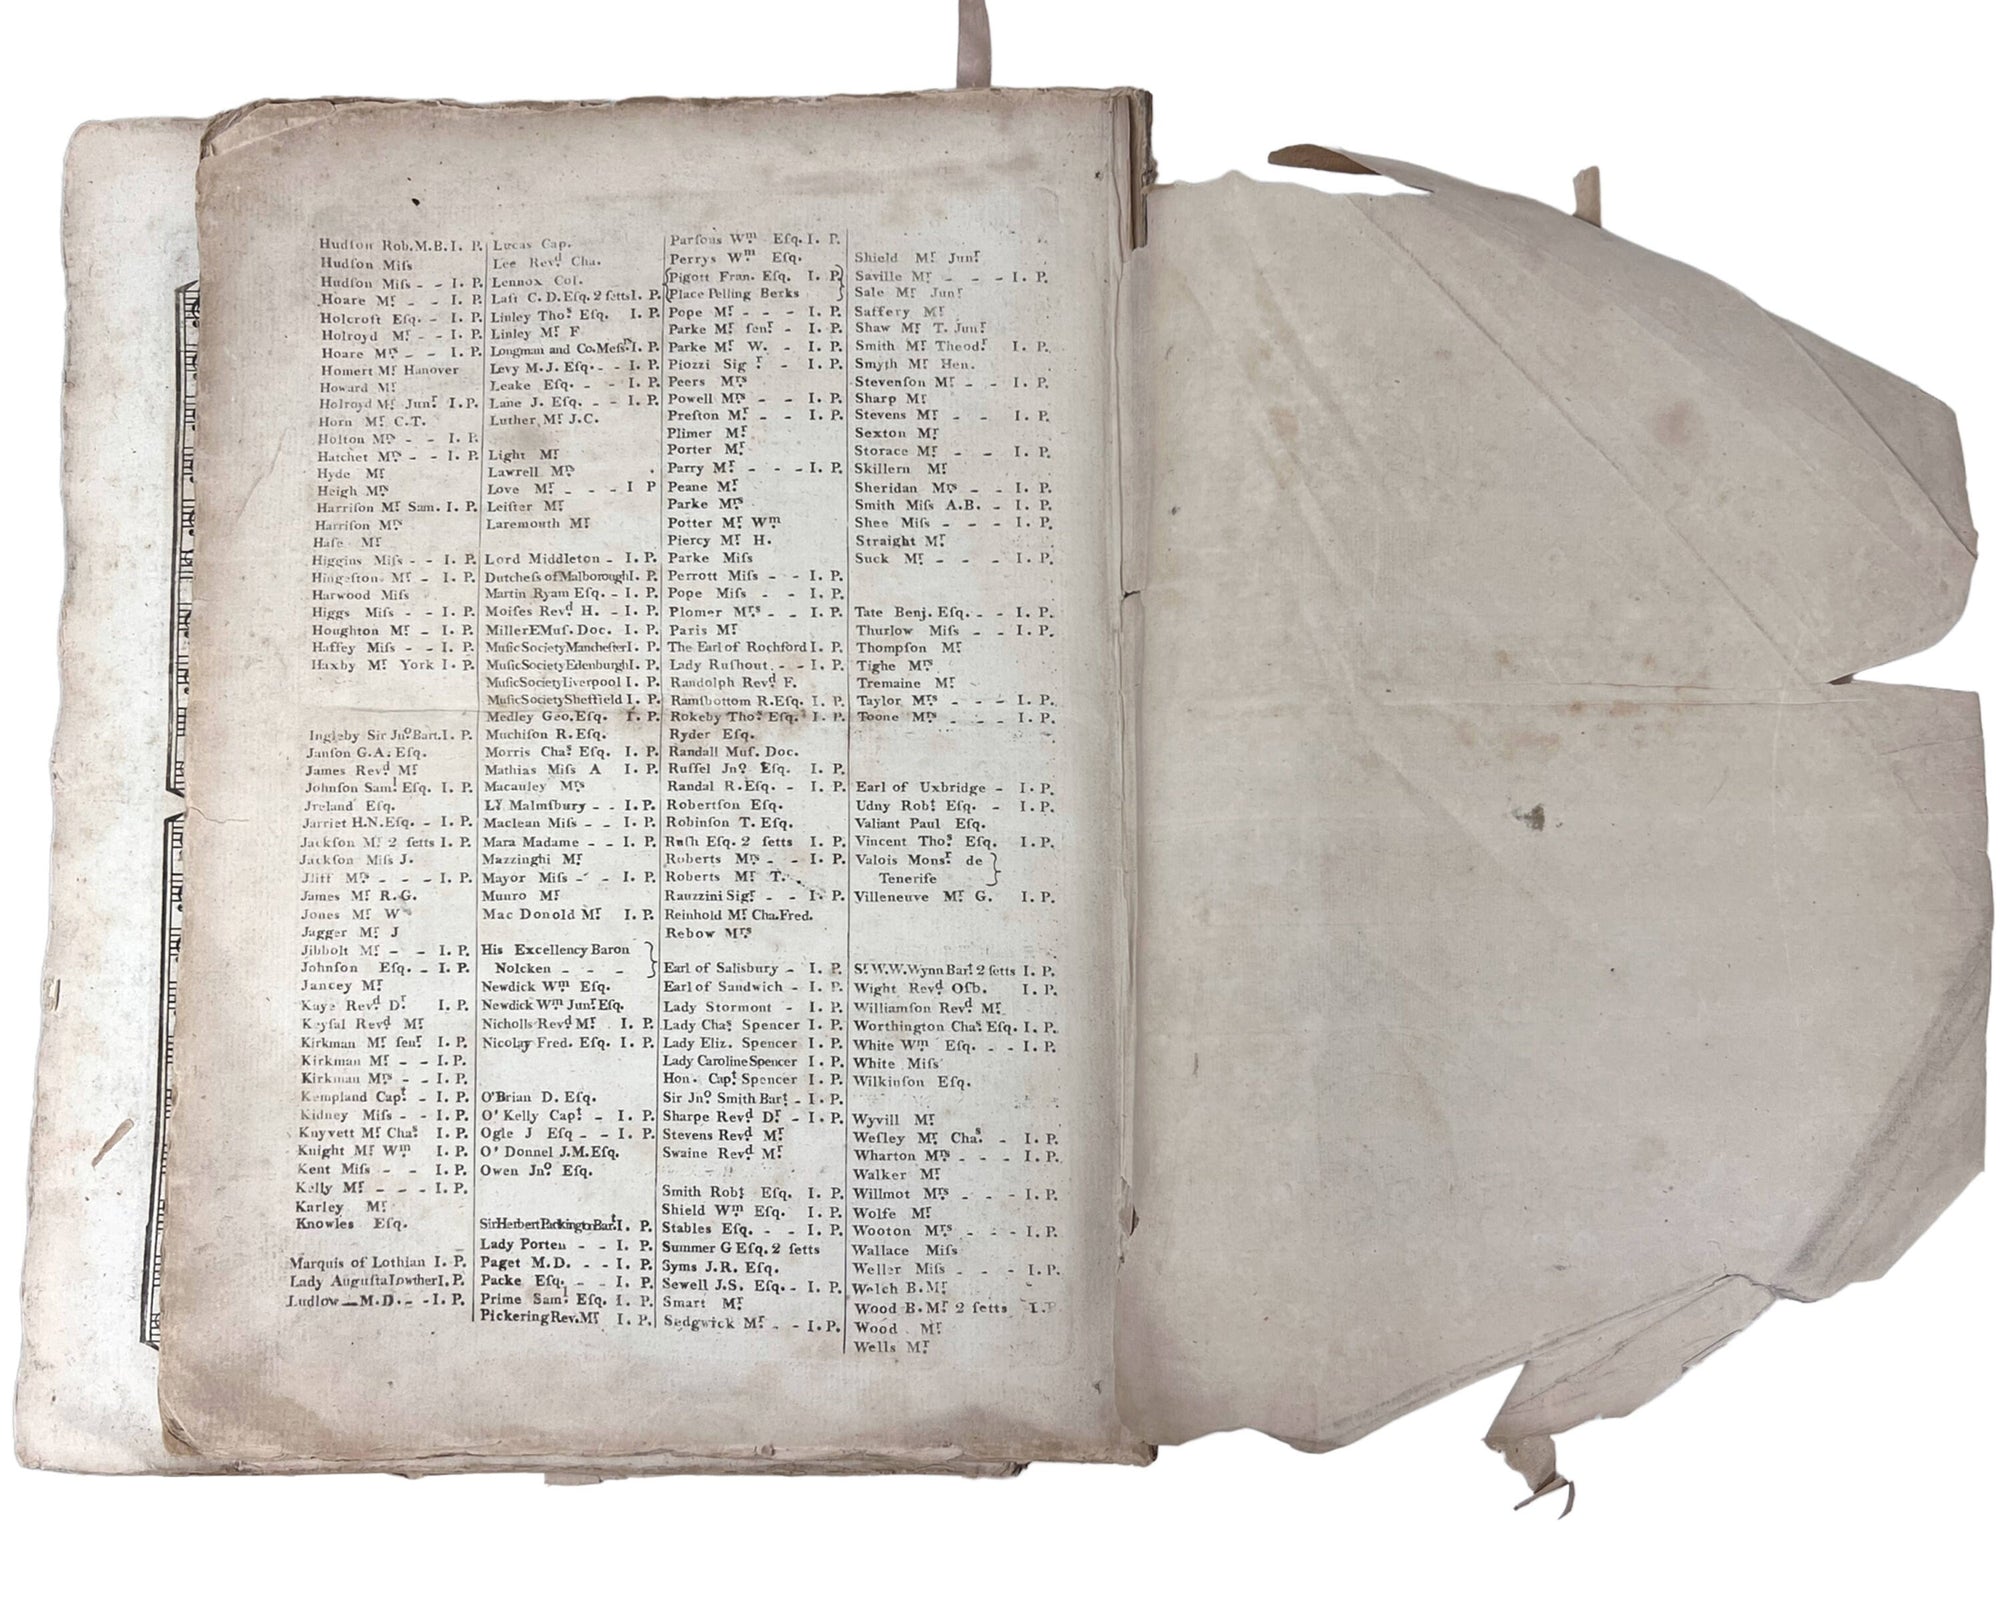 Hudſon Rob. M.B. I. P.
Hudſon Miſs
Hudſon Miſs - - I. P.
Hoare Mr. - - I. P.
Holcroft Eſq. - I. P.
Holroyd Mr. - - I. P.
Hoare Mrs. - - I. P.
Homert Mr. Hanover
Howard Mr.
Holroyd Mr. Junr. I. P.
Horn Mr. C.T.
Holton Mrs. - - I. P.
Hatchet Mrs. - - I. P.
Hyde Mr.
Heigh Mrs.
Harriſon Mr. Sam. I. P.
Harriſon Mrs.
Haſe Mr.
Higgins Miſs - - I. P.
Hingeſton Mr. - I. P.
Harwood Miſs
Higgs Miſs - - I. P.
Houghton Mr. - I. P.
Haffey Miſs - - I. P.
Haxby Mr. York I. P.
Ingleby Sir Jno. Bart. I. P.
Janſon G.A. Eſq.
James Revd. Mr.
Johnſon Saml. Eſq. I. P.
Jreland Eſq.
Jarriet H.N. Eſq. - I. P.
Jackſon Mr. 2 ſetts I. P.
Jackſon Miſs J.
Jliff Mrs. - - - I. P.
James Mr. R.G.
Jones Mr. W
Jagger Mr. J
Jibbolt Mr. - - I. P.
Johnſon Eſq. - I. P.
Jancey Mr.
Kaye Revd. Dr. I. P.
Keyſal Revd. Mr.
Kirkman Mr. ſenr. I. P.
Kirkman Mr. - - I. P.
Kirkman Mrs. - - I. P.
Kempland Capt. - I. P.
Kidney Miſs - - I. P.
Knyvett Mr. Chas. I. P.
Knight Mr. Wm. I. P.
Kent Miſs - - I. P.
Kelly Mr. - - - I. P.
Karley Mr.
Knowles Eſq.
Marquis of Lothian I. P.
Lady Auguſta Lowther I. P.
Ludlow — M.D. - - I. P.
Lucas Cap.
Lee Revd. Cha.
Lennox Col.
Laſt C. D. Eſq. 2 ſetts I. P.
Linley Thos. Eſq. I. P.
Linley Mr. F
Longman and Co. Meſsrs. I. P.
Levy M.J. Eſq. - - I. P.
Leake Eſq. - - I. P.
Lane J. Eſq. - - I. P.
Luther Mr. J.C.
Light Mr.
Lawrell Mrs.
Love Mr. - - - I P
Leiſter Mr.
Laremouth Mr.
Lord Middleton - I. P.
Dutcheſs of Malborough I. P.
Martin Ryam Eſq. - I. P.
Moiſes Revd. H. - I. P.
Miller E Muſ. Doc. I. P.
Muſic Society Mancheſter I. P.
Muſic Society Edenburgh I. P.
Muſic Society Liverpool I. P.
Muſic Society Sheffield I. P.
Medley Geo. Eſq. I. P.
Muchiſon R. Eſq.
Morris Chas. Eſq. I. P.
Mathias Miſs A I. P.
Macauley Mrs.
Ly. Malmſbury - - I. P.
Maclean Miſs - - I. P.
Mara Madame - - I. P.
Mazzinghi Mr.
Mayor Miſs - - I. P.
Munro Mr.
Mac Donold Mr. I. P.
His Excellency Baron
Nolcken - - -
Newdick Wm. Eſq.
Newdick Wm. Junr. Eſq.
Nicholls Revd. Mr. I. P.
Nicolay Fred. Eſq. I. P.
O'Brian D. Eſq.
O' Kelly Capt. - I. P.
Ogle J Eſq - - I. P.
O' Donnel J.M. Eſq.
Owen Jno. Eſq.
Sir Herbert Packington Bart. I. P.
Lady Porten - - I. P.
Paget M.D. - - I. P.
Packe Eſq. - - I. P.
Prime Saml. Eſq. I. P.
Pickering Rev. Mr. I. P.
Parſons Wm. Eſq. I. P.
Perrys Wm. Eſq.
Pigott Fran. Eſq. I. P.
Place Pelling Berks
Pope Mr. - - - I. P.
Parke Mr. ſenr. - I. P.
Parke Mr. W. - I. P.
Piozzi Sigr. - I. P.
Peers Mrs.
Powell Mrs. - - I. P.
Preſton Mr. - - I. P.
Plimer Mr.
Porter Mr.
Parry Mr. - - - I. P.
Peane Mr.
Parke Mrs.
Potter Mr. Wm.
Piercy Mr. H.
Parke Miſs
Perrott Miſs - - I. P.
Pope Miſs - - I. P.
Plomer Mrs. - - I. P.
Paris Mr.
The Earl of Rochford I. P.
Lady Ruſhout - - I. P.
Randolph Revd. F.
Ramſbottom R. Eſq. I. P.
Rokeby Thos. Eſq. I. P.
Ryder Eſq.
Randall Muſ. Doc.
Ruſſel Jno. Eſq. I. P.
Randal R. Eſq. - I. P.
Robertſon Eſq.
Robinſon T. Eſq.
Ruſh Eſq. 2 ſetts I. P.
Roberts Mrs. - - I. P.
Roberts Mr. T.
Rauzzini Sigr. - - I. P.
Reinhold Mr. Cha. Fred.
Rebow Mrs.
Earl of Salisbury - I. P.
Earl of Sandwich - I. P.
Lady Stormont - I. P.
Lady Chas. Spencer I. P.
Lady Eliz. Spencer I. P.
Lady Caroline Spencer I. P.
Hon. Capt. Spencer I. P.
Sir Jno. Smith Bart. - I. P.
Sharpe Revd. Dr. - I. P.
Stevens Revd. Mr.
Swaine Revd. Mr.
Smith Robt. Eſq. I. P.
Shield Wm. Eſq. I. P.
Stables Eſq. - - I. P.
Summer G Eſq. 2 ſetts
Syms J.R. Eſq.
Sewell J.S. Eſq. - I. P.
Smart Mr.
Sedgwick Mr. - - I. P.
Shield Mr. Junr.
Saville Mr. - - - I. P.
Sale Mr. Junr.
Saffery Mr.
Shaw Mr. T. Junr.
Smith Mr. Theodr. I. P.
Smyth Mr. Hen.
Stevenſon Mr. - - I. P.
Sharp Mr.
Stevens Mr. - - I. P.
Sexton Mr.
Storace Mr. - - I. P.
Skillern Mr.
Sheridan Mrs. - - I. P.
Smith Miſs A.B. - I. P.
Shee Miſs - - - I. P.
Straight Mr.
Suck Mr. - - I. P.
Tate Benj. Eſq. - - I. P.
Thurlow Miſs - - I. P.
Thompſon Mr.
Tighe Mrs.
Tremaine Mr.
Taylor Mrs. - - - I. P.
Toone Mrs. - - - I. P.
Earl of Uxbridge - I. P.
Udny Robt. Eſq. - I. P.
Valiant Paul Eſq.
Vincent Thos. Eſq. I. P.
Valois Monsr. de
Tenerife
Villeneuve Mr. G. I. P.
Sr. W.W. Wynn Bart. 2 ſetts I. P.
Wight Revd. Oſb. I. P.
Williamſon Revd. Mr.
Worthington Chas. Eſq. I. P.
White Wm. Eſq. - - I. P.
White Miſs
Wilkinſon Eſq.
Wyvill Mr.
Weſley Mr. Chas. - I. P.
Wharton Mrs. - - - I. P.
Walker Mr.
Willmot Mrs. - - - I. P.
Wolfe Mr.
Wooton Mrs. - - - I. P.
Wallace Miſs
Weller Miſs - - - I. P.
Welch B. Mr.
Wood B. Mr. 2 ſetts I. P.
Wood Mr.
Wells Mr.